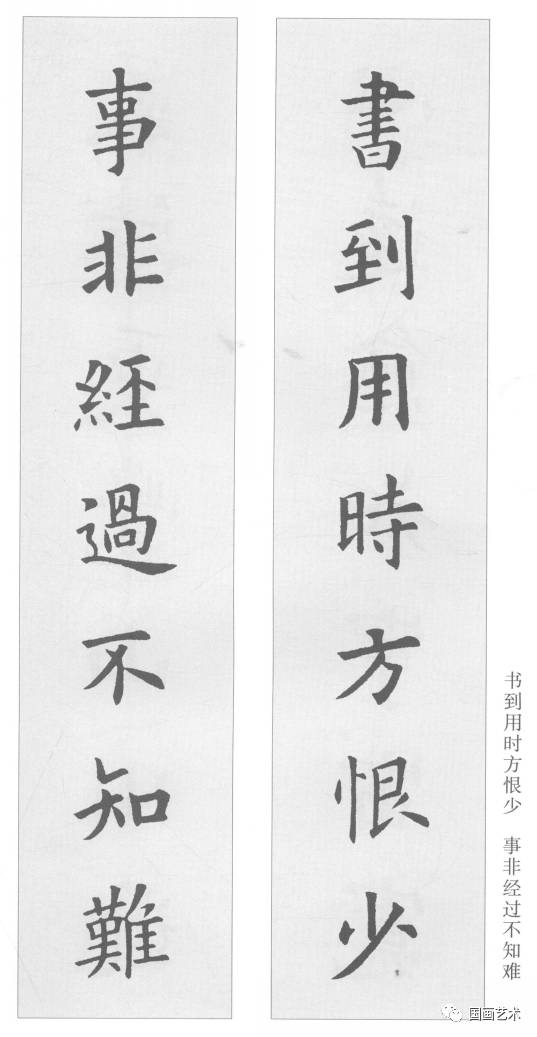 書到用時方恨少
事非經過不知難
书到用时方恨少 事非经过不知难
国画艺术